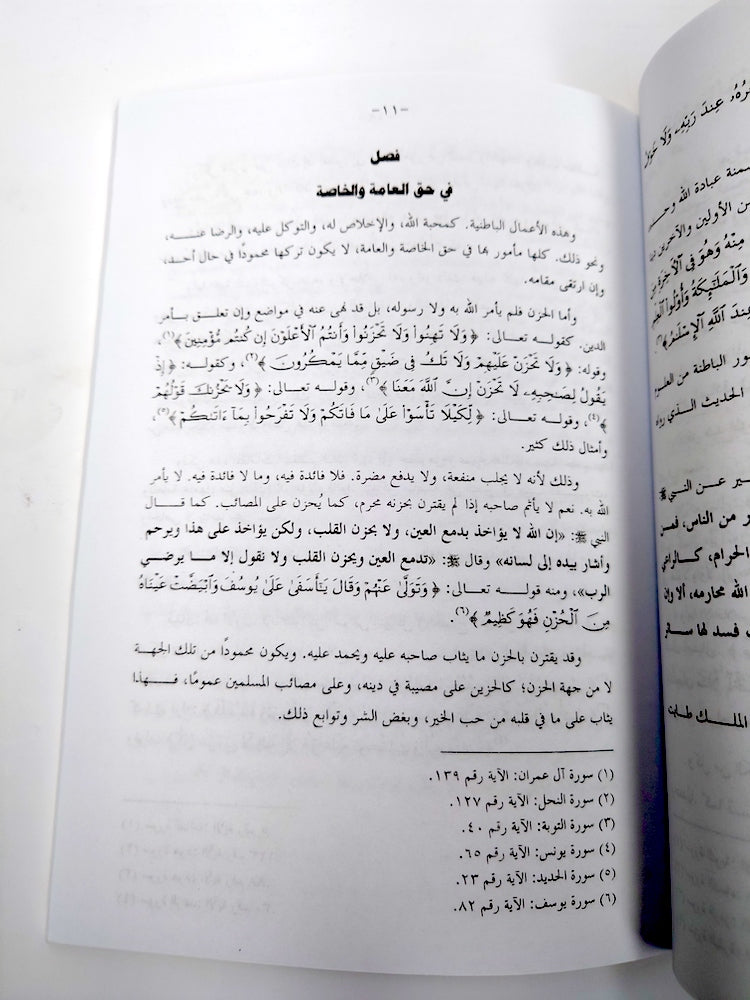 -١١-
فصل
في حق العامة والخاصة
وهذه الأعمال الباطنية. كمحبة الله، والإخلاص له، والتوكل عليه، والرضا عنه،
ونحو ذلك. كلها مأمور بها في حق الخاصة والعامة، لا يكون تركها محمودًا في حال أحد،
وإن ارتقى مقامه.
وأما الحزن فلم يأمر الله به ولا رسوله، بل قد نهى عنه في مواضع وإن تعلق بأمر
الدين. كقوله تعالى: ﴿وَلَا تَهِنُوا۟ وَلَا تَحْزَنُوا۟ وَأَنتُمُ ٱلْأَعْلَوْنَ إِن كُنتُم مُّؤْمِنِينَ﴾(١)،
وقوله: ﴿وَلَا تَحْزَنْ عَلَيْهِمْ وَلَا تَكُ فِى ضَيْقٍ مِّمَّا يَمْكُرُونَ﴾(٢)، وكقوله: ﴿إِذْ
يَقُولُ لِصَـٰحِبِهِۦ لَا تَحْزَنْ إِنَّ ٱللَّهَ مَعَنَا﴾(٣)، وقوله تعالى: ﴿وَلَا يَحْزُنكَ قَوْلُهُمْ
﴾(٤)، وقوله تعالى: ﴿لِّكَيْلَا تَأْسَوْا۟ عَلَىٰ مَا فَاتَكُمْ وَلَا تَفْرَحُوا۟ بِمَآ ءَاتَىٰكُمْ﴾(٥)،
وأمثال ذلك كثير.
وذلك لأنه لا يجلب منفعة، ولا يدفع مضرة. فلا فائدة فيه، وما لا فائدة فيه. لا يأمر
الله به. نعم لا يأثم صاحبه إذا لم يقترن بحزنه محرم، كما يُحزن على المصائب. كما قال
النبي ﷺ: «إن الله لا يؤاخذ بدمع العين، ولا بحزن القلب، ولكن يؤاخذ على هذا ويرحم
وأشار بيده إلى لسانه» وقال ﷺ: «تدمع العين ويحزن القلب ولا نقول إلا ما يرضي
الرب»، ومنه قوله تعالى: ﴿وَتَوَلَّىٰ عَنْهُمْ وَقَالَ يَـٰٓأَسَفَىٰ عَلَىٰ يُوسُفَ وَٱبْيَضَّتْ عَيْنَاهُ
مِنَ ٱلْحُزْنِ فَهُوَ كَظِيمٌ﴾(٦).
وقد يقترن بالحزن ما يثاب صاحبه عليه ويحمد عليه. ويكون محمودًا من تلك الجهة
لا من جهة الحزن؛ كالحزين على مصيبة في دينه، وعلى مصائب المسلمين عمومًا، فهذا
يثاب على ما في قلبه من حب الخير، وبغض الشر وتوابع ذلك.
(١) سورة آل عمران: الآية رقم ١٣٩.
(٢) سورة النحل: الآية رقم ١٢٧.
(٣) سورة التوبة: الآية رقم ٤٠.
(٤) سورة يونس: الآية رقم ٦٥.
(٥) سورة الحديد: الآية رقم ٢٣.
(٦) سورة يوسف: الآية رقم ٨٢.
عِندَ رَبِّهِۦ وَلَا خَوْفٌ
عبادة الله
من الأولين والآخرين
مِنْهُ وَهُوَ فِى ٱلْـَٔاخِرَةِ مِنَ
وَٱلْمَلَـٰٓئِكَةُ وَأُو۟لُوا۟ ٱلْعِلْمِ
عِندَ ٱللَّهِ ٱلْإِسْلَـٰمُ
الباطنة من العلوم
الحديث الذي رواه
عن النبي ﷺ
من الناس، فمن
الحرام، كالراعي
الله محارمه، ألا وإن
فسد لها سائر
الملك طابت